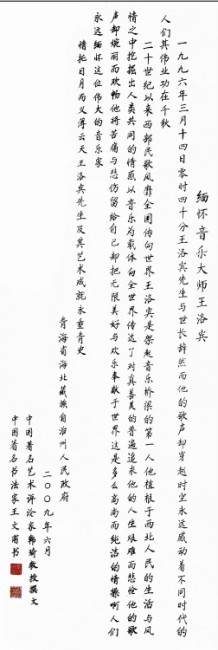 缅怀音乐大师王洛宾
一九九六年三月十四日零时四十分王洛宾先生与世长辞然而他的歌声却穿越时空永远感动着不同时代的
人们其伟业功在千秋
二十世纪以来西部民歌风靡全国传向世界王洛宾是架起音乐桥梁的第一人他植根于西北人民的生活与风
情之中挖掘出人类共同的情愫以音乐为载体向全世界传达了对真善美的普遍追求他的人生艰难而悲怆他的歌
声却婉丽而欢畅他将苦痛与悲伤留给自己却把无限美好与欢乐奉献于世界这是多么高尚而纯洁的情操啊人们
永远缅怀这位伟大的音乐家
情抱日月而义薄云天王洛宾先生及其艺术成就永垂青史
青海省海北藏族自治州人民政府
二〇〇九年六月
中国著名艺术评论家 教授撰文
中国著名书法家王文甫书